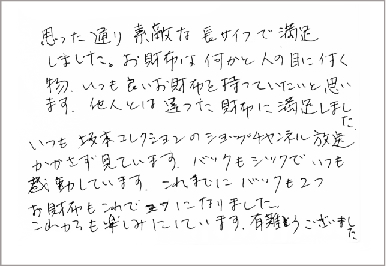 思った通り素敵な長サイフで満足
しました。お財布は何かと人の目に付く
物、いつも良いお財布を持っていたいと思い
ます。他人とは違った財布に満足しました
いつも坂本コレクションのショップチャンネル放送
かかさず見ています。バックもシックでいつも
感動しています。これまでにバックも2つ
お財布もこれで3つになりました。
これからも楽しみにしています。有難とうございました